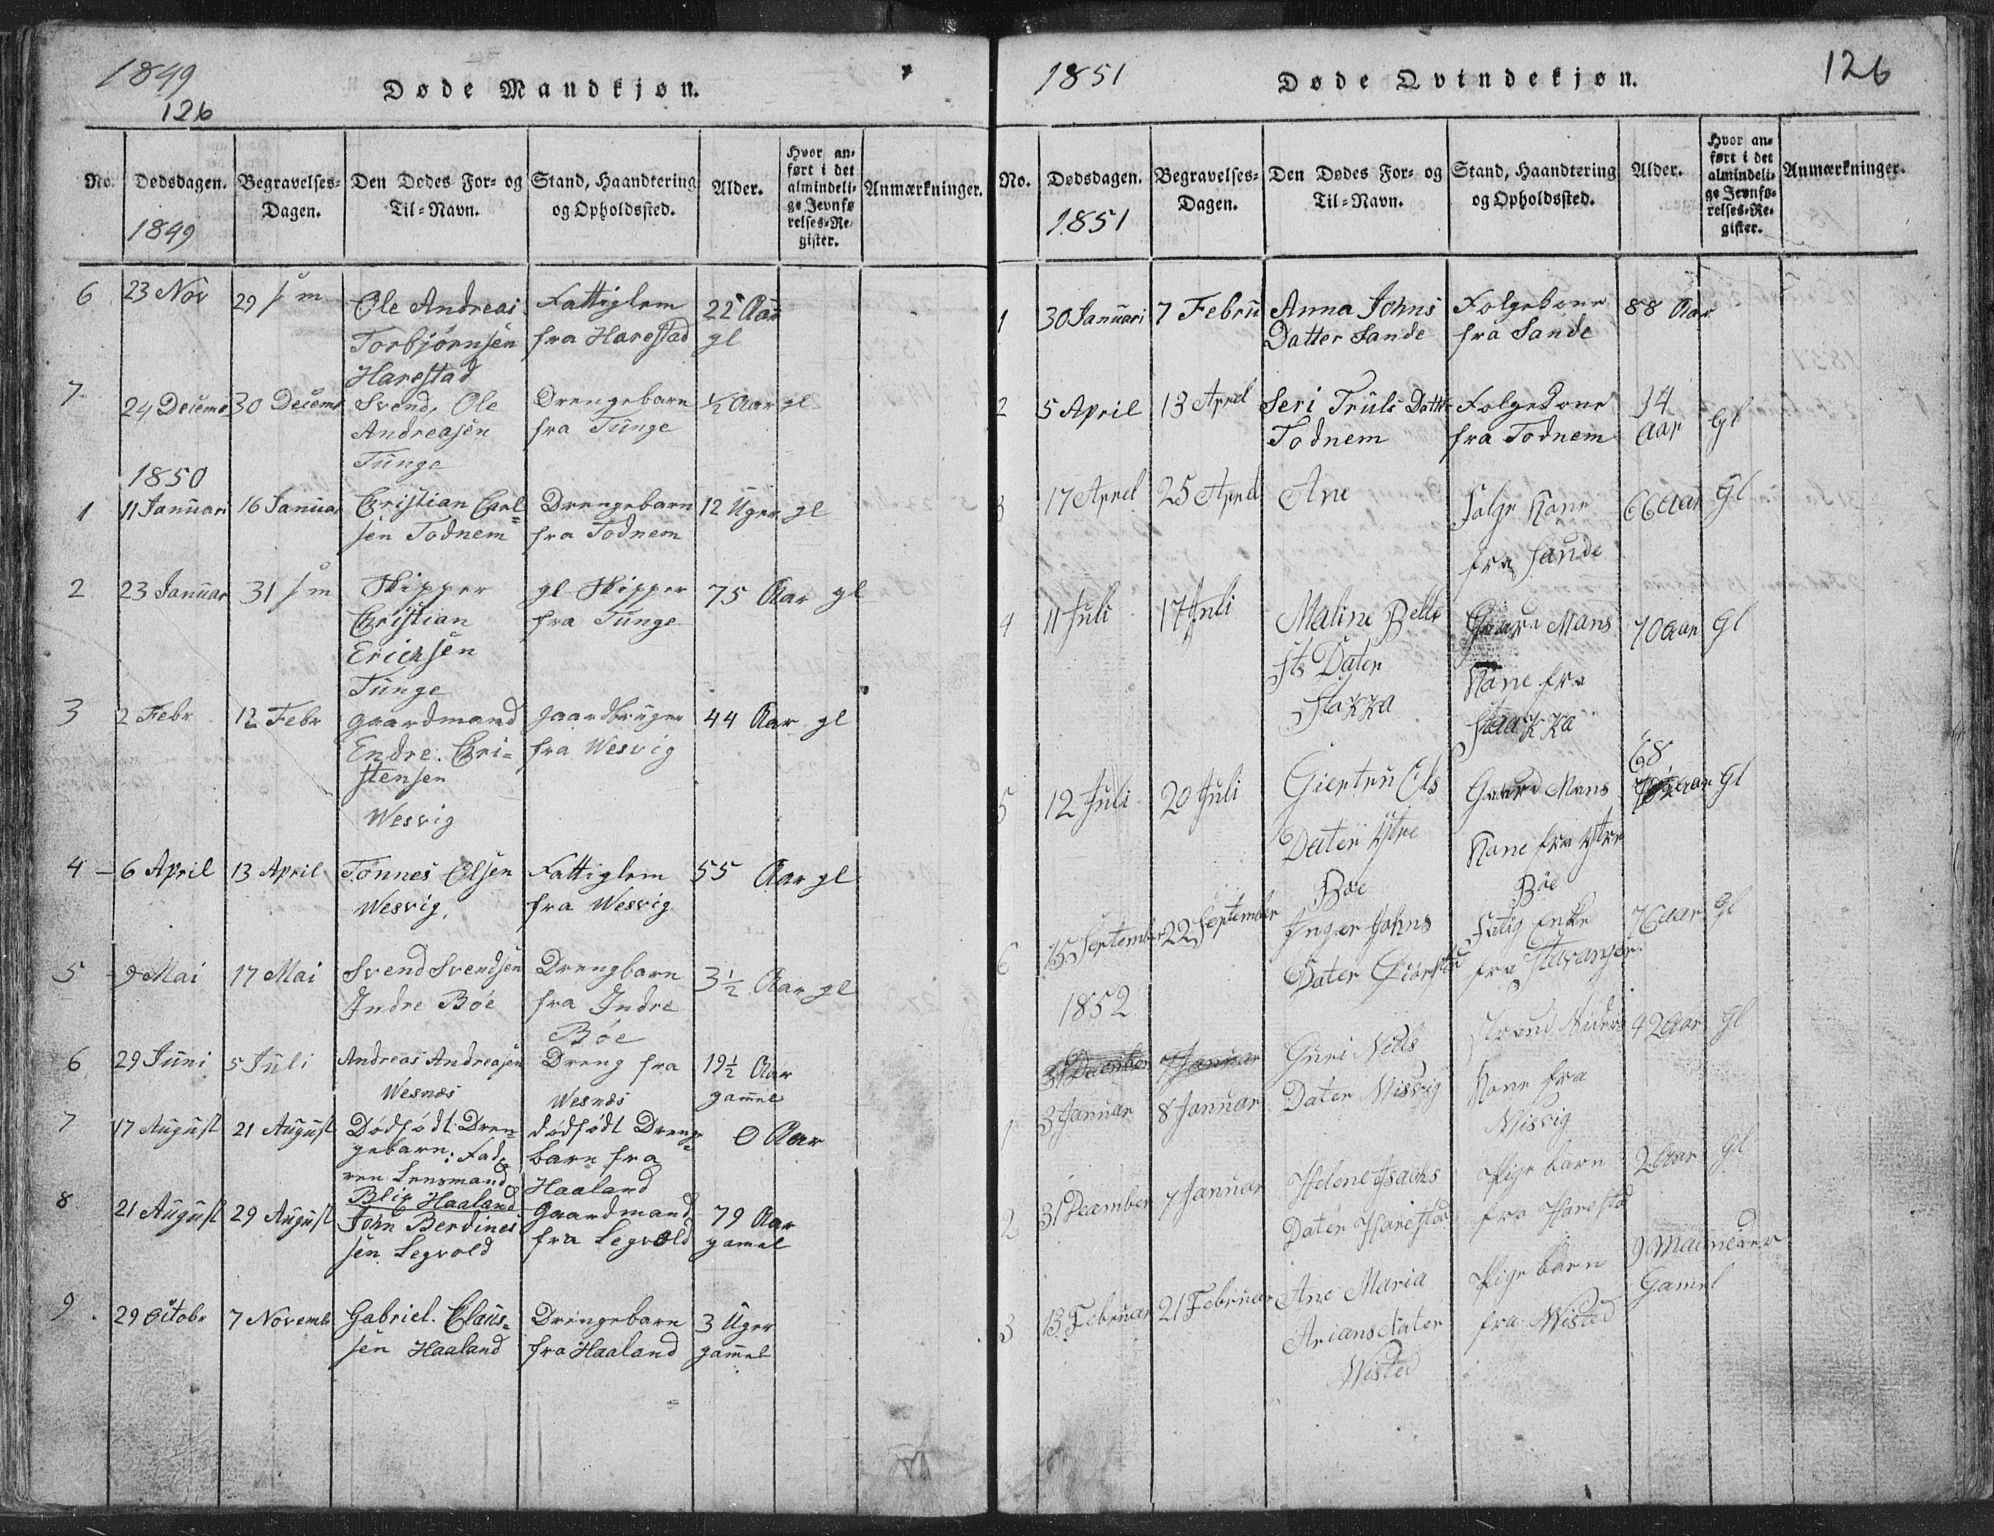 1849
126
Døde Mandkjøn.
No.
Dødsdagen.
Begravelses-
Dagen.
Den Dødes For- og
Til-Navn.
Stand, Haandtering
og Opholdssted.
Alder.
Hvor an-
ført i det
almindeli-
ge Jevnfø
relses-Re-
gister.
Anmærkninger.
1849
6 23 Nov 29 s m Ole Andreas Fattiglem 22 Aar
Torbjørnsen fra Harestad gl
Harestad
7 24 Decemb 30 Decemb Svend, Ole Drengebarn 1/2 Aar gl
Andreasen fra Tunge
Tunge
1850
1 11 Januari 16 Januar Christian Carl= Drengebarn 12 Uger gl
sen Todnem fra Todnem
2 23 Januar 31 s m Skipper gl Skipper 75 Aar gl
Christian fra Tunge
Erichsen
Tunge
3 2 Febr 12 Febr gaardmand gaardbruger 44 Aar gl
Endre. Chri= fra Wesvig
stensen
Wesvig
4 6 April 13 April Tønnes Olsen Fattiglem 55 Aar gl
Wesvig, fra Wesvig
5 9 Mai 17 Mai Svend Svendsen Drengbarn 3 1/2 Aar gl
Indre Bøe fra Indre
Bøe
6 29 Juni 5 Juli Andreas Andreasen Dreng fra 19 1/2 Aar
Wesnæs Wesnæs gammel
7 17 August 21 August Dødfødt Dren= dødfødt Dreng= 0 Aar
gebarn: Fad= barn fra
ren Lensmand Haaland
Blix Haaland
8 21 August 29 August John Berdines gaardmand 79 Aar
sen Legvold fra Legvold gamel
9 29 Octobr 7 Novemb Gabriel. Claus= Drengebarn 3 Uger
sen Haaland fra Haaland gammel
1851
Døde Qvindekjøn.
126
No.
Dødsdagen.
Begravelses-
Dagen.
Den Dødes For- og
Til-Navn.
Stand, Haandtering
og Opholdssted.
Alder.
Hvor an-
ført i det
almindeli-
ge Jevnfø-
relses-Re-
gister.
Anmærkninger.
1851
1 30 Januari 7 Febru Anna Johns Folgekone 88 Aar
Datter Sande fra Sande
2 5 April 13 April Seri Truls Datter Folgekone 14 gl
Todnem fra Todnem Aar
3 17 April 25 April Ane Folge Kone 66 Aar gl
fra Sande
4 11 Juli 17 Juli Maline Mans 70 Aar gl
Dater Kone fra
Stakka Stakka
68
5 12 Juli 20 Juli Giertru Ols Gaard Mans Aar gl
Dater Ytre Kone fra Ytre
Bøe Bøe
6 15 September 22 September Inger Johns Fatig Enke 76 Aar gl
Dater fra Stavanger
1852
31 December 7 Januar Guri Nills 42 Aar gl
1 3 Januar 8 Januar Dater Misvig Kone fra
Misvig
2 31 December 7 Januar Helene Isachs Pige barn 2 Aar gl
Dater Harestad fra Harestad
3 13 Februar 21 Februar Ane Maria Pige barn 9 Maaneder
Arians dater fra Wisted Gamel
Wisted